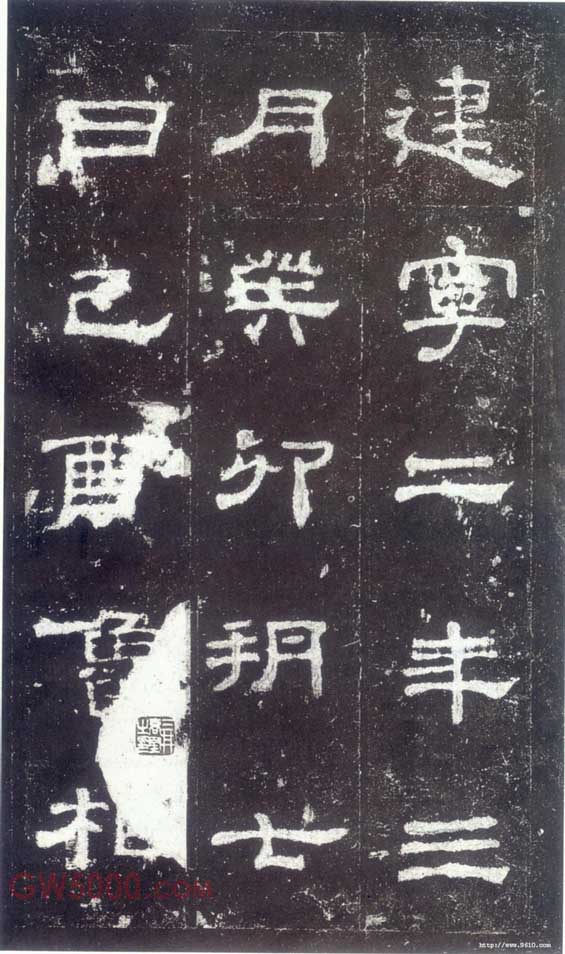 建寧二年三
月癸卯朔七
日己酉魯相
GW5000.COM
http://www.9610.com